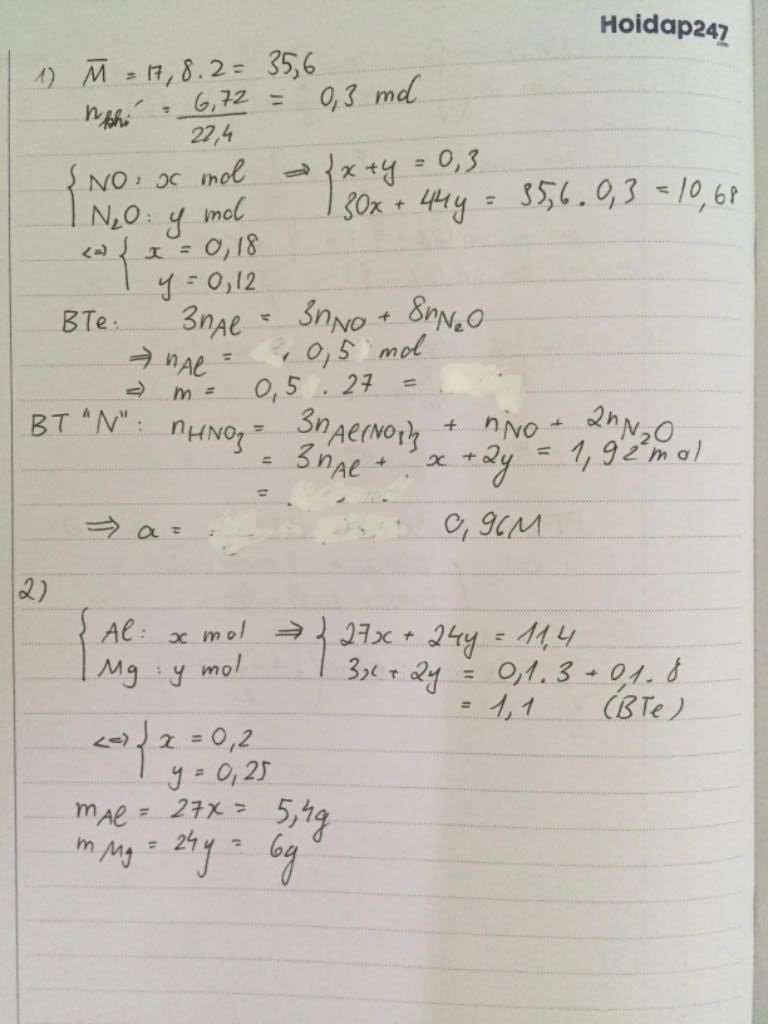 Hoidap247
.com
1) M̅ = 17,8.2 = 35,6
n khí = 6,72 / 22,4 = 0,3 mol
{ NO: x mol ⇒ { x+y = 0,3
N₂O: y mol 30x + 44y = 35,6.0,3 = 10,68
⇔ { x = 0,18
y = 0,12
BTe: 3nAl = 3nNO + 8nN₂O
⇒ nAl = 0,5 mol
⇒ m = 0,5 . 27 =
BT "N": nHNO₃ = 3nAl(NO₃)₃ + nNO + 2nN₂O
= 3nAl + x + 2y = 1,92 mol
=
⇒ a = 0,96M
2)
{ Al: x mol ⇒ { 27x + 24y = 11,4
Mg: y mol 3x + 2y = 0,1.3 + 0,1.8
= 1,1 (BTe)
⇔ { x = 0,2
y = 0,25
mAl = 27x = 5,4g
mMg = 24y = 6g